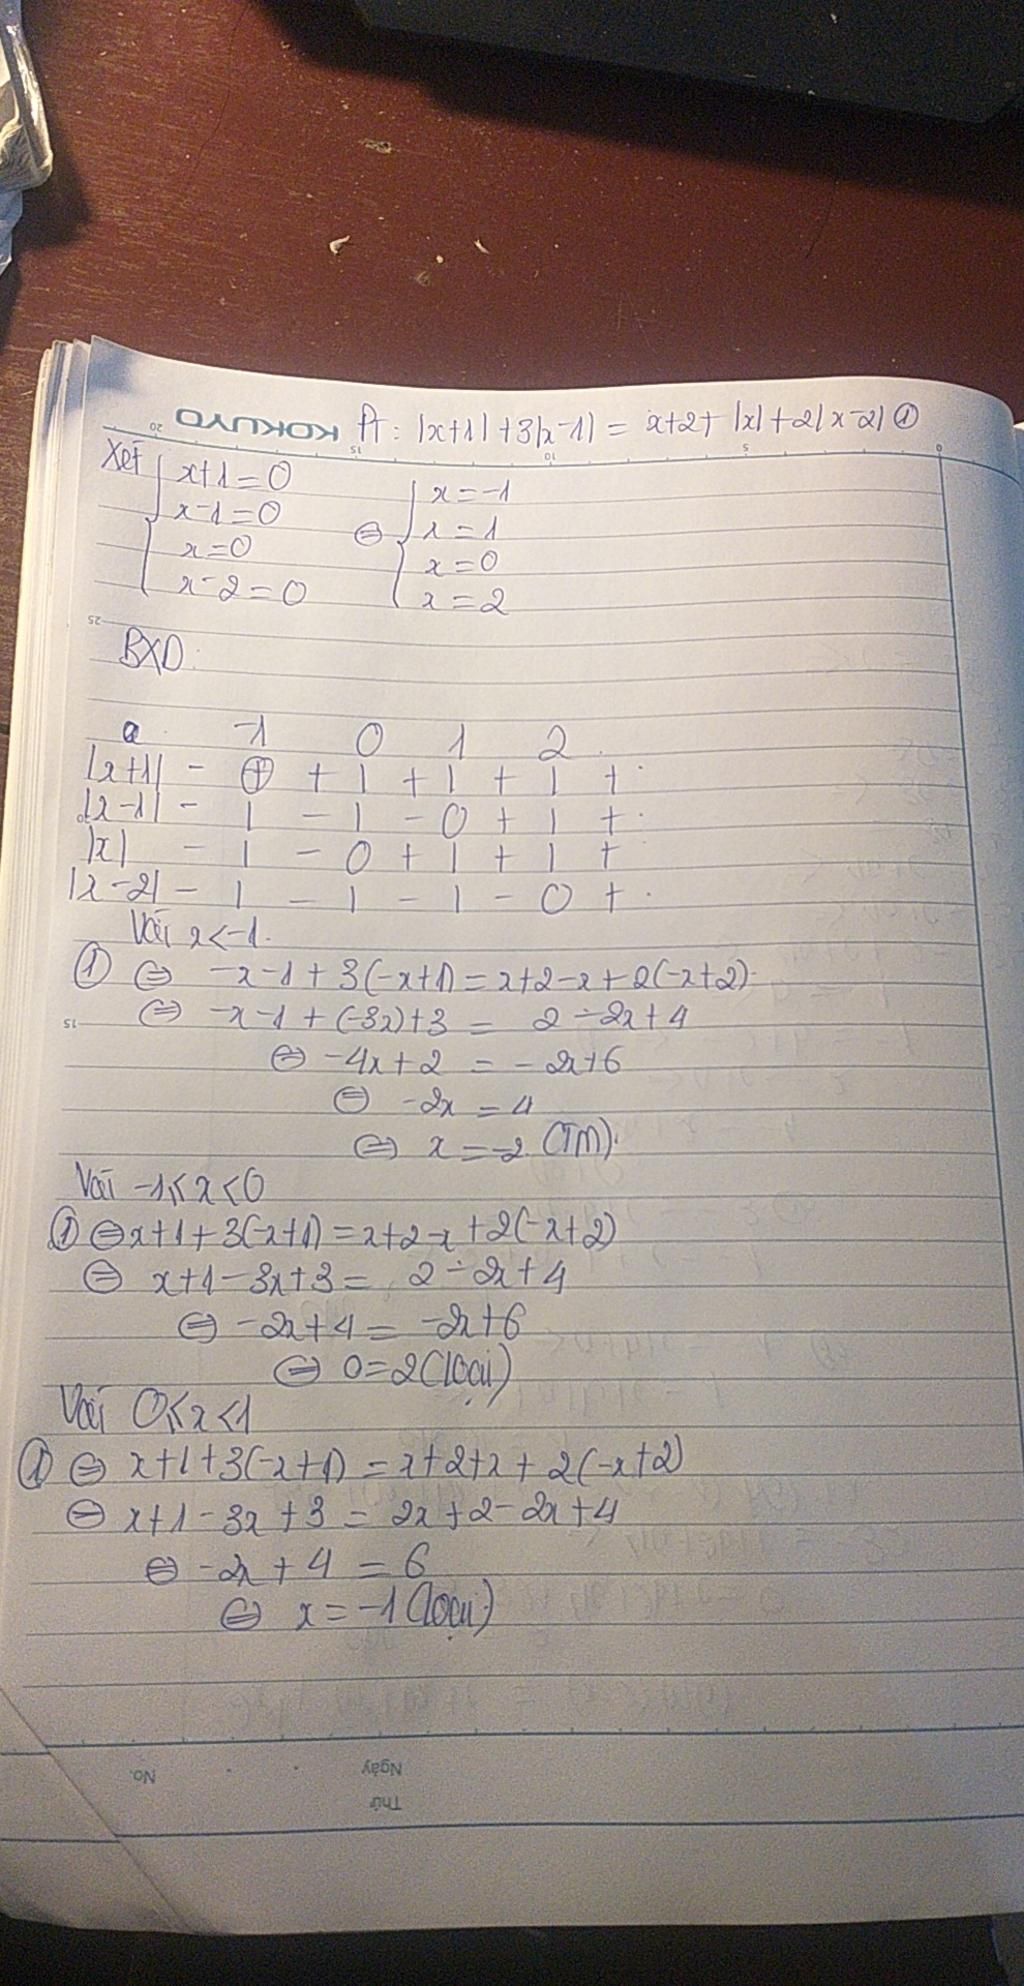 KOKUYO Pt: |x+1|+3|x-1| = x+2+ |x|+2|x-2| ①
20 15 10 5 0
Xét { x+1=0
x-1=0
x=0
x-2=0
⇔ { x=-1
x=1
x=0
x=2
25
BXD:
-1 0 1 2
|x+1| - 0 + | + | + | +
|x-1| - | - | - 0 + | +
|x| - | - 0 + | + | +
|x-2| - | - | - | - 0 +
Với x<-1.
① ⇔ -x-1+3(-x+1)=x+2-x+2(-x+2)
15
⇔ -x-1+(-3x)+3 = 2-2x+4
⇔ -4x+2 = -2x+6
⇔ -2x = 4
⇔ x=-2 (TM).
Với -1≤x<0
① ⇔ x+1+3(-x+1)=x+2-x+2(-x+2)
⇔ x+1-3x+3= 2-2x+4
⇔ -2x+4= -2x+6
⇔ 0=2(loại)
Với 0≤x<1
① ⇔ x+1+3(-x+1) =x+2+x+2(-x+2)
⇔ x+1-3x+3 = 2x+2-2x+4
⇔ -2x+4 = 6
⇔ x=-1(loại)
No. Ngày
Thứ